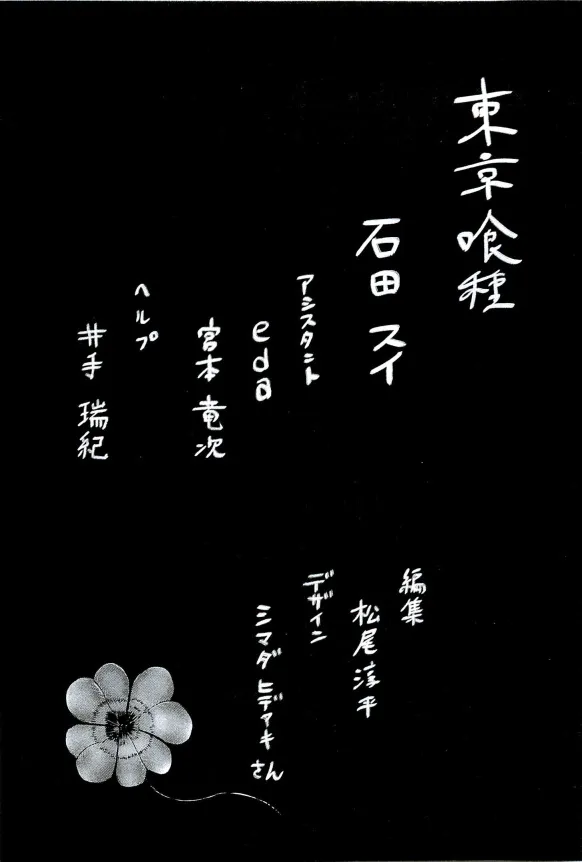 東京喰種
石田 スイ
アシスタント
eda
宮本 竜次
ヘルプ
井手 瑞紀
編集
松尾淳平
デザイン
シマダ ヒデアキさん